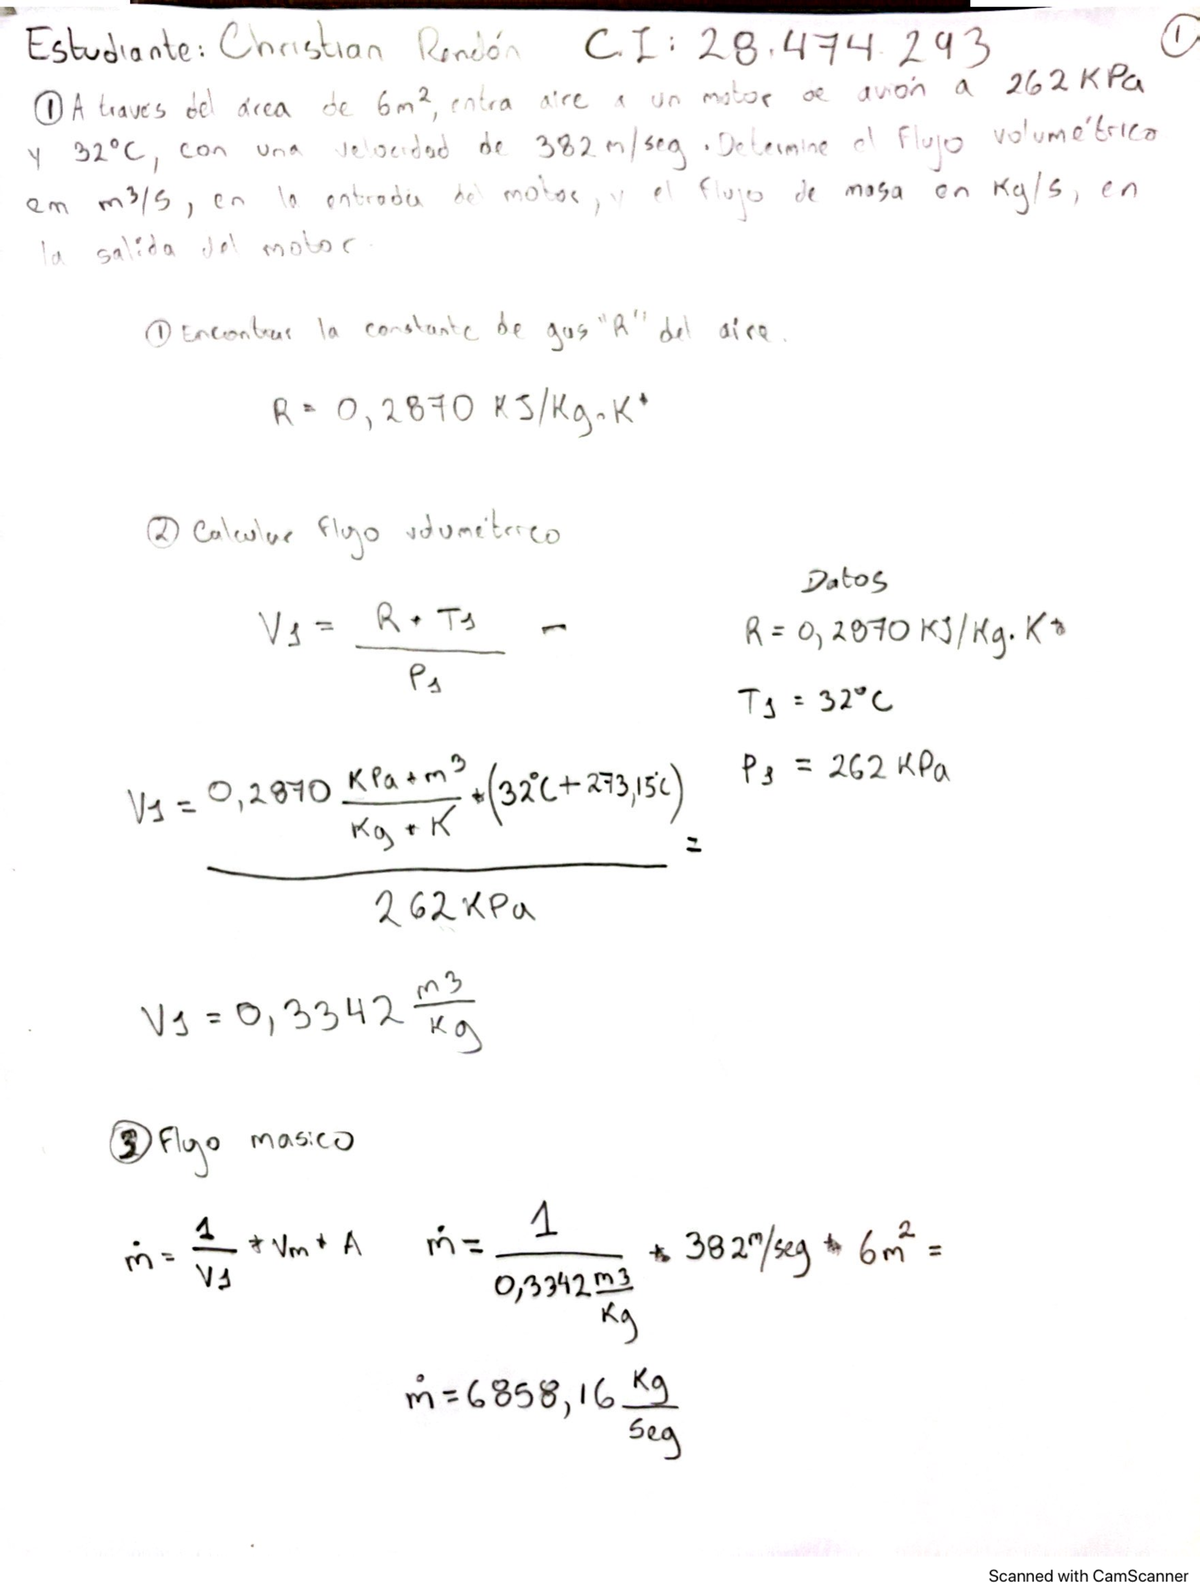 Estudiante: Christian Rondón C.I: 28.474.293 1
① A traves del área de 6m², entra aire a un motor de avión a 262 KPa
y 32°C, con una velocidad de 382 m/seg. Determine el Flujo volumétrico
em m³/s, en la entrada del motor, y el flujo de masa en Kg/s, en
la salida del motor.
① Encontrar la constante de gas "R" del aire.
R = 0,2870 KJ/Kg.K*
② Calcular flujo volumétrico
Datos
V1 = R * T1 / P1 -
R = 0,2870 KJ/Kg.K*
T1 = 32°C
P1 = 262 KPa
V1 = 0,2870 KPa * m³ / Kg * K * (32°C + 273,15C) / 262 KPa =
V1 = 0,3342 m3/Kg
③ Flujo masico
ṁ = 1/V1 * Vm * A ṁ = 1 / 0,3342 m3/Kg * 382 m/seg * 6m² =
ṁ = 6858,16 Kg/Seg
Scanned with CamScanner